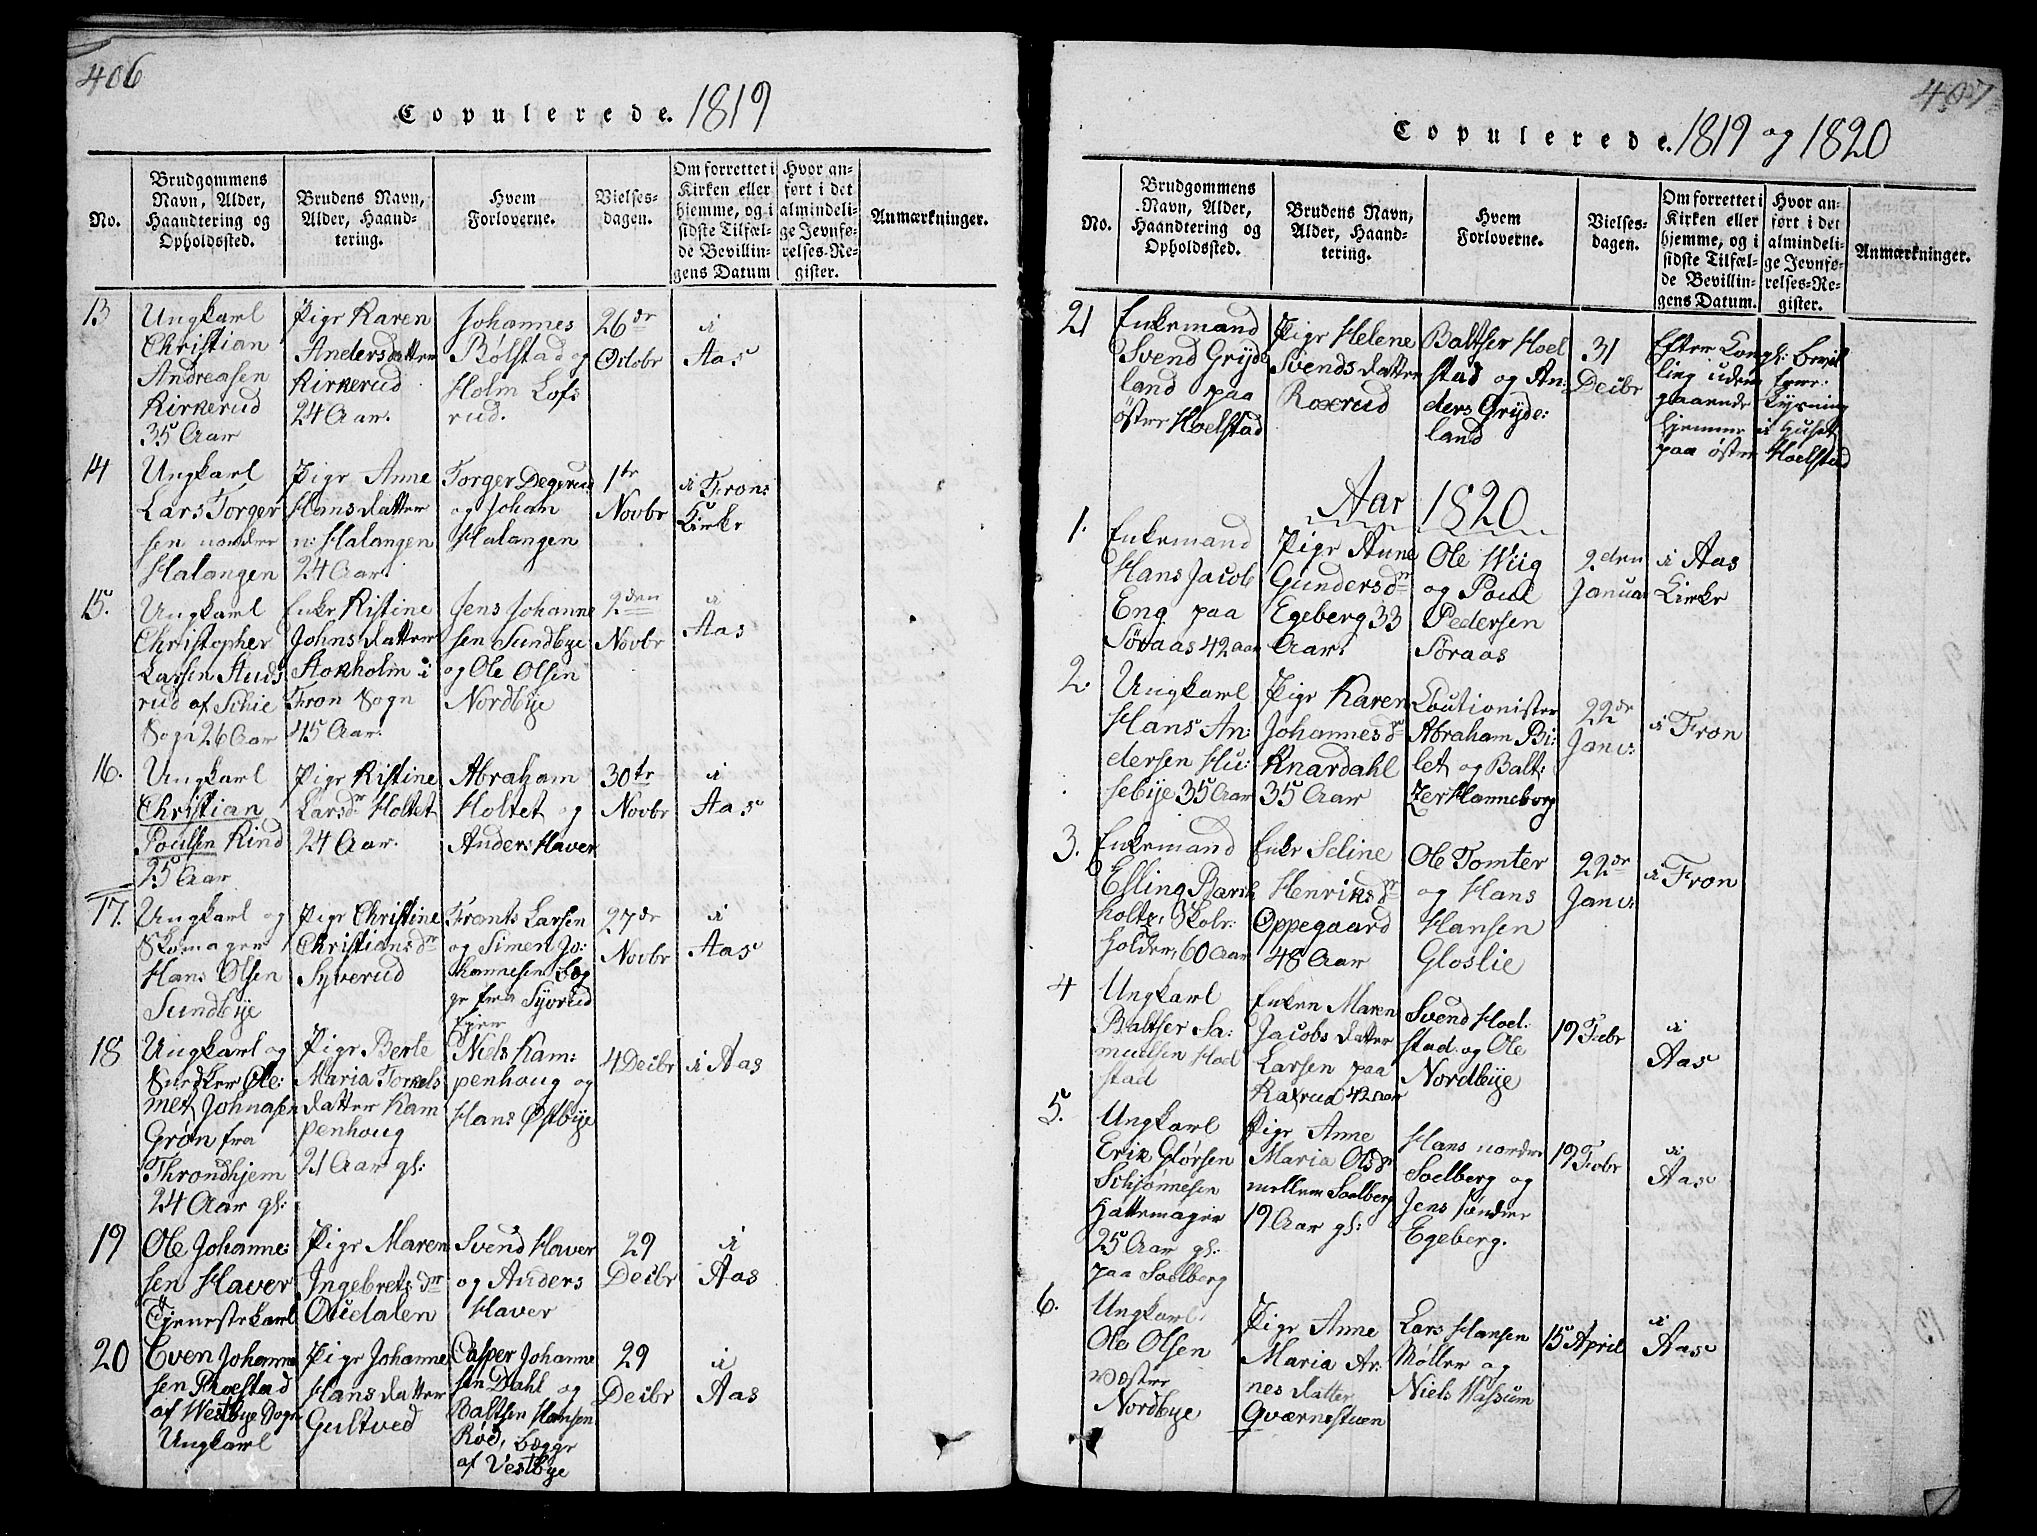 406
Copulerede. 1819
No.
Brudgommens
Navn, Alder,
Haandtering og
Opholdssted.
Brudens Navn,
Alder, Haand-
tering.
Hvem
Forloverne.
Vielses-
dagen.
Om forrettet i
Kirken eller
hjemme, og i
sidste Tilfæl-
de Bevillin-
gens Datum
Hvor an-
ført i det
almindeli-
ge Jevnfø-
relses-Re-
gister.
Anmærkninger.
13
Ungkarl
Christian
Andreasen
Kirkerud
35 Aar
Pige Karen
Andersdatter
Kirkerud
24 Aar.
Johannes
Bølstad og
Holm Lofs
rud.
26de
Octobr
i
Aas
14
Ungkarl
Lars Torger
sen nordre
Halangen
Pige Anne
Hansdatter
n: Halangen
24 Aar
Torger Degerud
og Johan
Halangen
1te
Novbr
i Fron:
Kirke
15.
Ungkarl
Christopher
Larsen Aus
rud af Schie
Sogn 26 Aar
Enke Kistine
Johnsdatter
Stokholm i
Fron Sogn
45 Aar.
Jens Johanne
sen Sundbye
og Ole Olsen
Nordbye
2den
Novbr
i
Aas
16.
Ungkarl
Christian
Poulsen Rind
25 Aar
Pige Kistine
Larsdr Holtet
24 Aar.
Abraham
Holtet og
Anders Haver
30te
Novbr
i
Aas
17.
Ungkarl og
Skomager
Hans Olsen
Sundbye
Pige Christine
Christiansdr
Syverud
Frants Larsen
og Simen Jo:
hannesen Bæg
ge fra Syvrud
Ejer
27de
Novbr
i
Aas
18
Ungkarl og
Snedker Ole:
mer Johnasen
Grøn fra
Throndhjem
24 Aar gl:
Pige Berte
Maria Torkels
datter Kam
penhoug
21 Aar gl:
Niels Kam:
penhoug og
Hans Østbye
4 Decbr
i Aas
19
Ole Johanne:
sen Haver
Tjenestekarl
Pige Maren
Ingebretsdr
Ouedalen
Svend Haver
og Anders
Haver
29
Decbr
i
Aas
20
Even Johanne
sen
af Westbye Sogn
Ungkarl
Pige Johanne
Hansdatter
Gultved
Casper Johanne
sen Dahl og
Baltsen Hansen
Røed, bægge
af Vestbye
29
Decbr
i
Aas
407
Copulerede. 1819 og 1820
No.
Brudgommens
Navn, Alder,
Haandtering og
Opholdssted.
Brudens Navn,
Alder, Haand-
tering.
Hvem
Forloverne.
Vielses-
dagen.
Om forrettet i
Kirken eller
hjemme, og i
sidste Tilfæl-
de Bevillin-
gens Datum.
Hvor an-
ført i det
almindeli-
ge Jevnfø-
relses-Re-
gister.
Anmærkninger.
21
Enkemand
Svend Gryde
land paa
öster Hoelstad
Pige Helene
Svends datter
Roxrud
Baltser Hoel
stad og An:
ders Gryde:
land
31
Decbr
Efter Kongl: bevil
ling uden fore:
gaaende Lysning
hjemme i Huset
paa øster Hoelstad
Aar 1820
1.
Enkemand
Hans Jacob
Eng paa
Søraas 42 aar
Pige Anne
Gundersdr
Egeberg 33
Aar.
Ole Wiig
og Poul
Pedersen
Søraas
2den
Januar
i Aas
Kirke
2.
Ungkarl
Hans An:
dersen Hu:
sebye 35 Aar
Pige Karen
Johannesdr
Knardahl
35 Aar
Cautionister
Abraham Bi:
let og Balt:
zer Hanneborg
22de
Janv:
i Fron
3.
Enkemand
Esling Barth
holts, Skole:
holder, 60 Aar
Enke Seline
Henriksdr
Oppegaard
48 Aar
Ole Tomter
og Hans
Hansen
Gloslie
22de
Janv:
i Fron
4
Ungkarl
Baltser Sa:
muelsen Hod
stad
Enken Maren
Jacobs datter
Larsen paa
Raxrud 42 aar
Svend Hoel:
stad og Ole
Nordbye
19 Febr
i
Aas
5.
Ungkarl
Erik Glørsen
Schjønnesen
Hattemager
25 Aar gl:
paa Soelberg
Pige Anne
Maria Olsdr
mellem Soelberg
19 Aar gl:
Hans nordre
Soelberg og
Jens søndre
Egeberg.
19 Febr
i
Aas
6.
Ungkarl
Ole Olsen
vester
Nordbye
Pige Anne
Maria Ar:
nes datter
Qværnestuen
Lars Hansen
Møller og
Niels Hassum
15 April
i
Aas